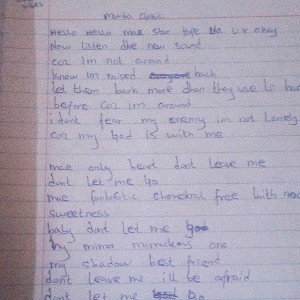 Munba Clasic
Hello Hello mae star Hope u r okay
Now listen dhe new sound
coz Im not around
know Im raised back
let them back more dhan they use to
before coz im around
i dont fear my enemy im not lonely
coz my god is with me
mae only heart dont leave me
dont let me go
mae fantastic free with
sweetness
baby dont let me
my mirror mirraculous one
my shadow best friend
dont leave me ill be afraid
dont let me go